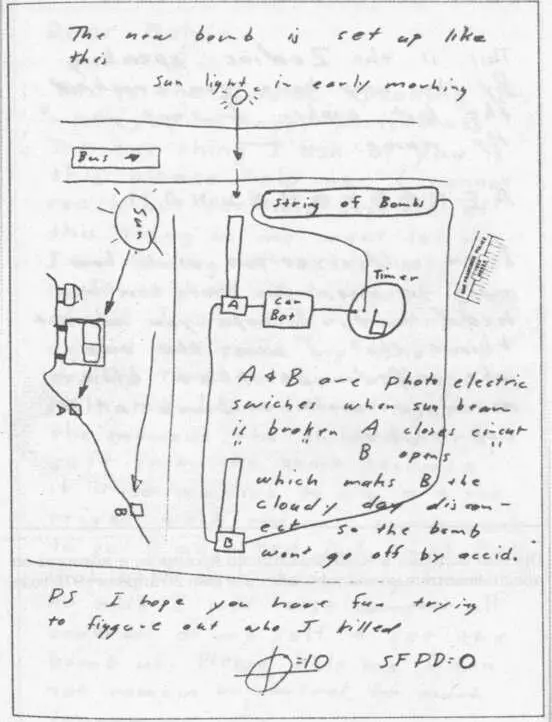 The new bomb is set up like
this
sun light in early morning
Bus →
Sun
String of Bombs
A
Car
Bat
Timer
A
B
A & B are photo electric
swiches when sun beam
is broken A closes circut
" " B opens "
which maks B the
cloudy day discon-
ect so the bomb
wont go off by accid.
B
PS I hope you have fun trying
to figgure out who I killed
=10 SFPD=0